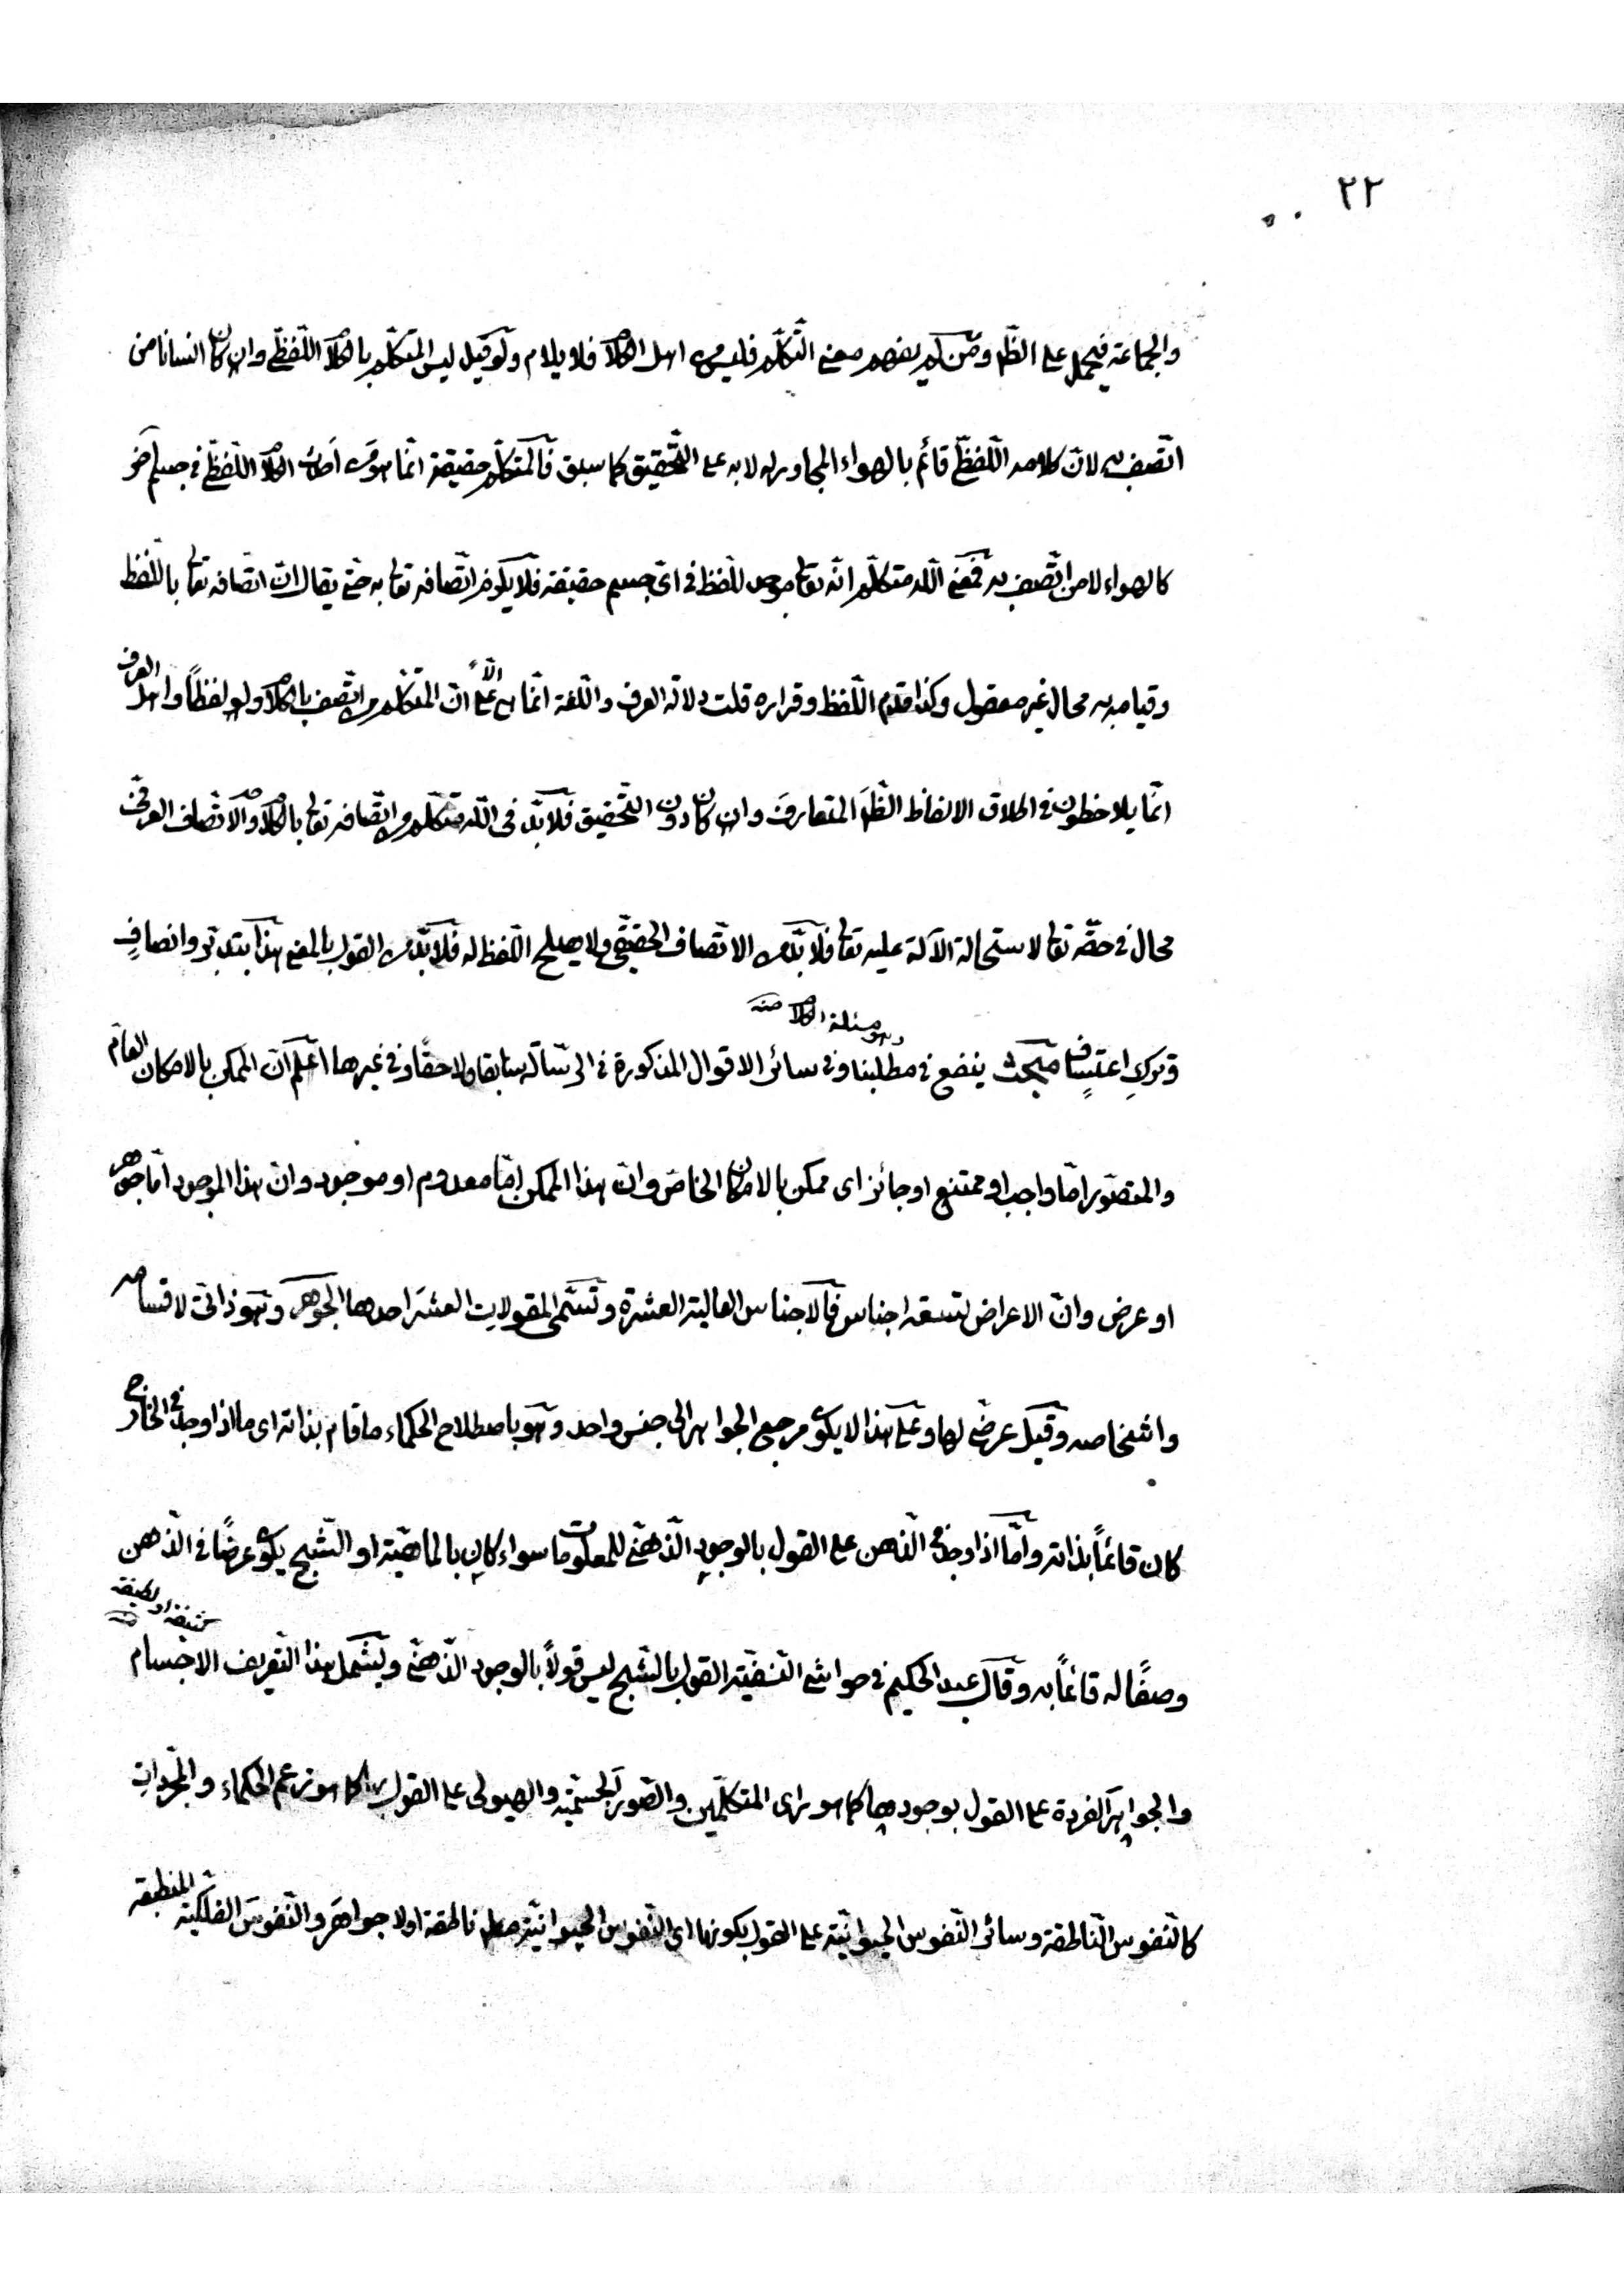 ٢٢
والجماعة فيحمل على الظّم ومن لم يفهم معنى التّكلّم فليس من اهل الكلام فلا يلام ولو قيل ليس المتكلّم بالكلام اللّفظي وان كان انسانا من
اتّصف به لانّ كلامه اللّفظيّ قائم بالهواء المجاور له لا به على التّحقيق كما سبق فالمتكلّم حقيقة انّما هو من اللّفظي في جسم آخر
كالهواء لا من اتّصف به فمعنى اللّه متكلّم انّه تعالى موجد للّفظ في اىّ جسم حقيقة فلا يكون اتّصافه تعالى به حتى يقال انّ اتّصافه تعالى باللّفظ
وقيامه به محال غير معقول وكذا قدم اللّفظ وقراره قلت دلالة العرف واللّغة انّما هى على انّ المتكلّم من اتّصف بالكلام ولو لفظاً واهل العرف
انّما يلاحظون في اطلاق الالفاظ الظّم المتعارف وان كان دون التّحقيق فلا بدّ في اللّه متكلّم من اتّصافه تعالى بالكلام والاتّصاف العرفي
محال في حقّه تعالى لاستحالة الآلة عليه تعالى فلا بدّ من الاتّصاف الحقيقيّ ولا يصلح اللّفظ له فلا بدّ من القول بالمعنى هذا بتدبّر وانصافٍ
وهو مسئلة الكلام منه
وتركِ اعتسافٍ مبحث ينفع في مطلبنا وفي سائر الاقوال المذكورة في الرّسالة سابقا ولاحقًا وفي غيرها اعلم انّ الممكن بالامكان العامّ
والمتصوّر امّا واجب او ممتنع او جائز اى ممكن بالامكان الخاصّ وانّ هذا الممكن امّا معدوم او موجود وانّ هذا الموجود امّا جوهر
او عرض وانّ الاعراض تسعة اجناس فالاجناس العالية العشرة وتسمّى المقولات العشر احدها الجوهر وهو ذاتىّ لاقسامه
واشخاصه وقيل عرضىّ لها وعلى هذا لا يكون مرجع الجواهر الى جنس واحد وهو باصطلاح الحكماء ما قام بذاته اى ما اذا وجد في الخارج
كان قائماً بذاته وامّا اذا وجد في الذّهن على القول بالوجود الذّهنّى للمعلومات سواء كان بالماهيّة او الشّبح يكون عرضًا في الذّهن
وصفًا له قائماً به وقال عبد الحكيم في حواشى النّسفيّة القول بالشّبح ليس قولاً بالوجود الذّهنّى ويشمل هذا التّعريف الاجسام
كثيفة او لطيفة منه
والجواهر الفردة على القول بوجودها كما هو راى المتكلّمين والصّور الجسميّة والهيولى على القول بها كما هو زعم الحكماء والمجرّدات
كالنّفوس النّاطقة وسائر النّفوس الحيوانيّة على القول بكونها اى النّفوس الحيوانيّة ناطقة اولا جواهر والنّفوس الفلكيّة المنطبقة